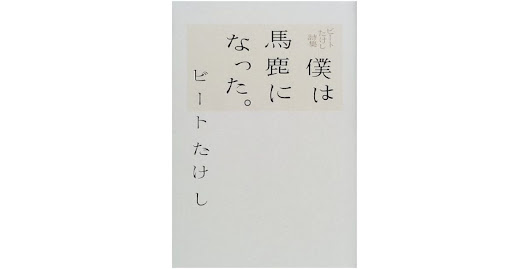 ビート
たけし
詩集
僕は
馬鹿に
なった。
ビートたけし